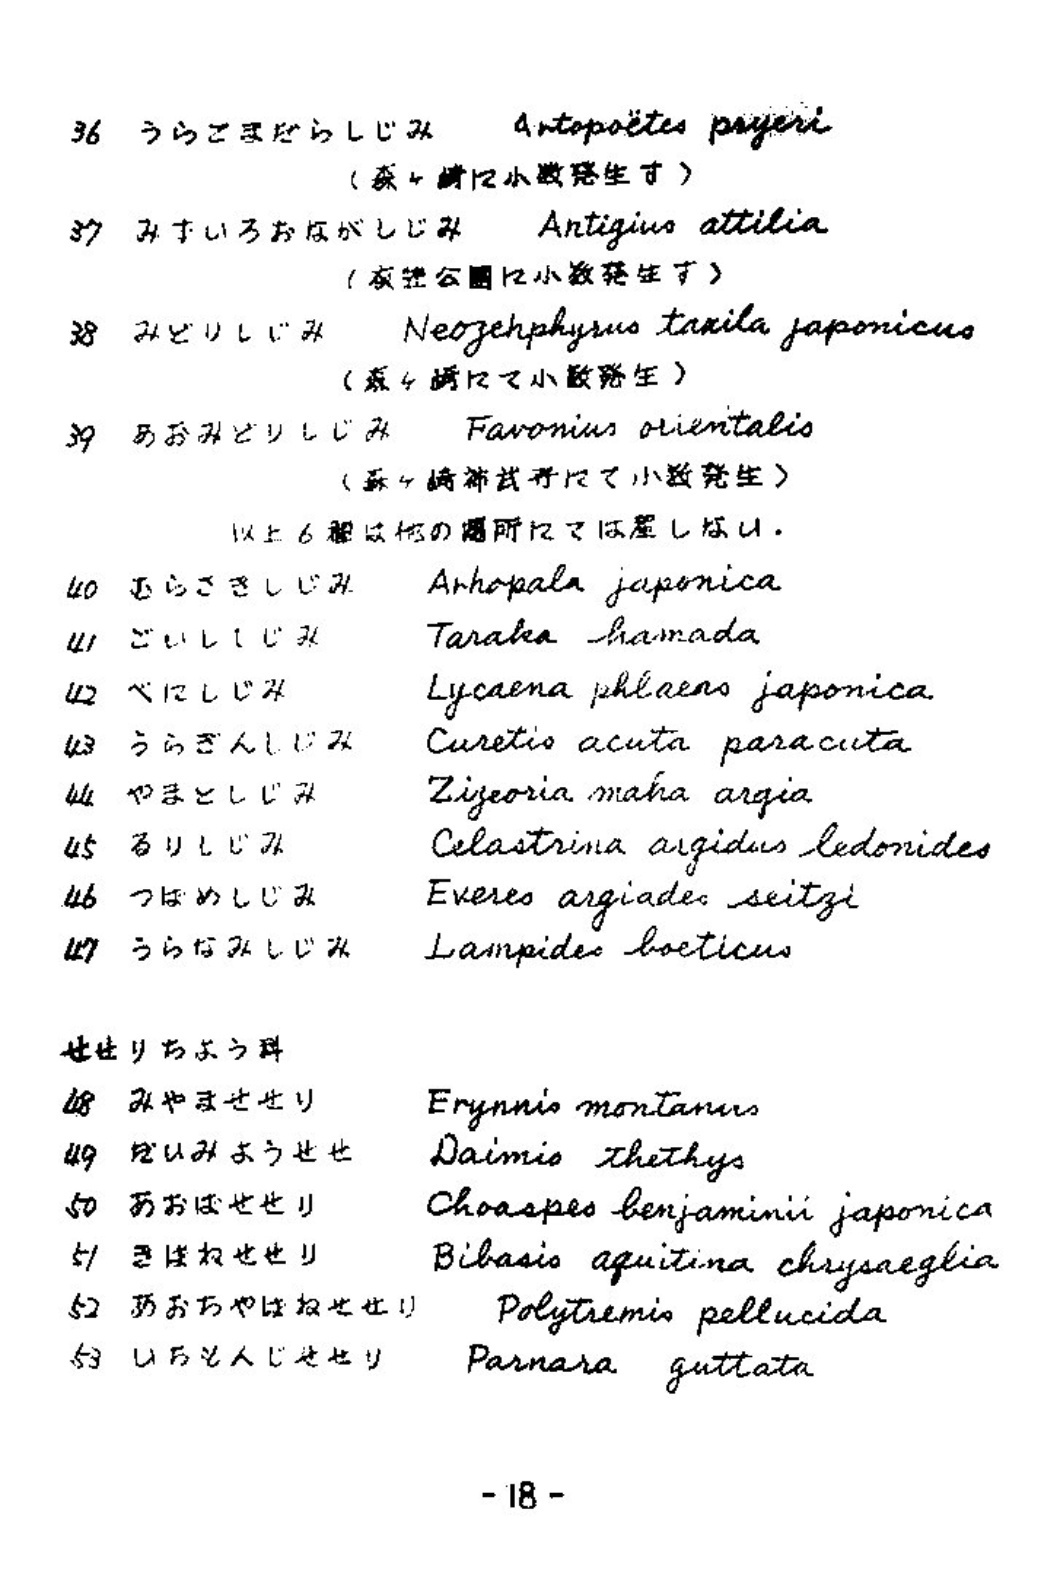 36 うらごまだらしじみ Artopoëtes pryeri
(森ヶ崎に小数発生す)
37 みずいろおながしじみ Antigius attilia
(公園に小数発生す)
38 みどりしじみ Neozehphyrus taxila japonicus
(森ヶ崎にて小数発生)
39 あおみどりしじみ Favonius orientalis
(森ヶ崎にて小数発生)
以上6種は他の場所にては産しない.
40 むらさきしじみ Arhopala japonica
41 ごいししじみ Taraka hamada
42 べにしじみ Lycaena phlaeas japonica
43 うらぎんしじみ Curetis acuta paracuta
44 やまとしじみ Zizeoria maha argia
45 るりしじみ Celastrina argidus ledonides
46 つばめしじみ Everes argiades seitzi
47 うらなみしじみ Lampides boeticus
せせりちよう科
48 みやませせり Erynnis montanus
49 だいみようせせ Daimio thethys
50 あおばせせり Choaspes benjaminii japonica
51 きばねせせり Bibasis aquitina chrysaeglia
52 あおちやばねせせり Polytremis pellucida
53 いちもんじせせり Parnara guttata
- 18 -